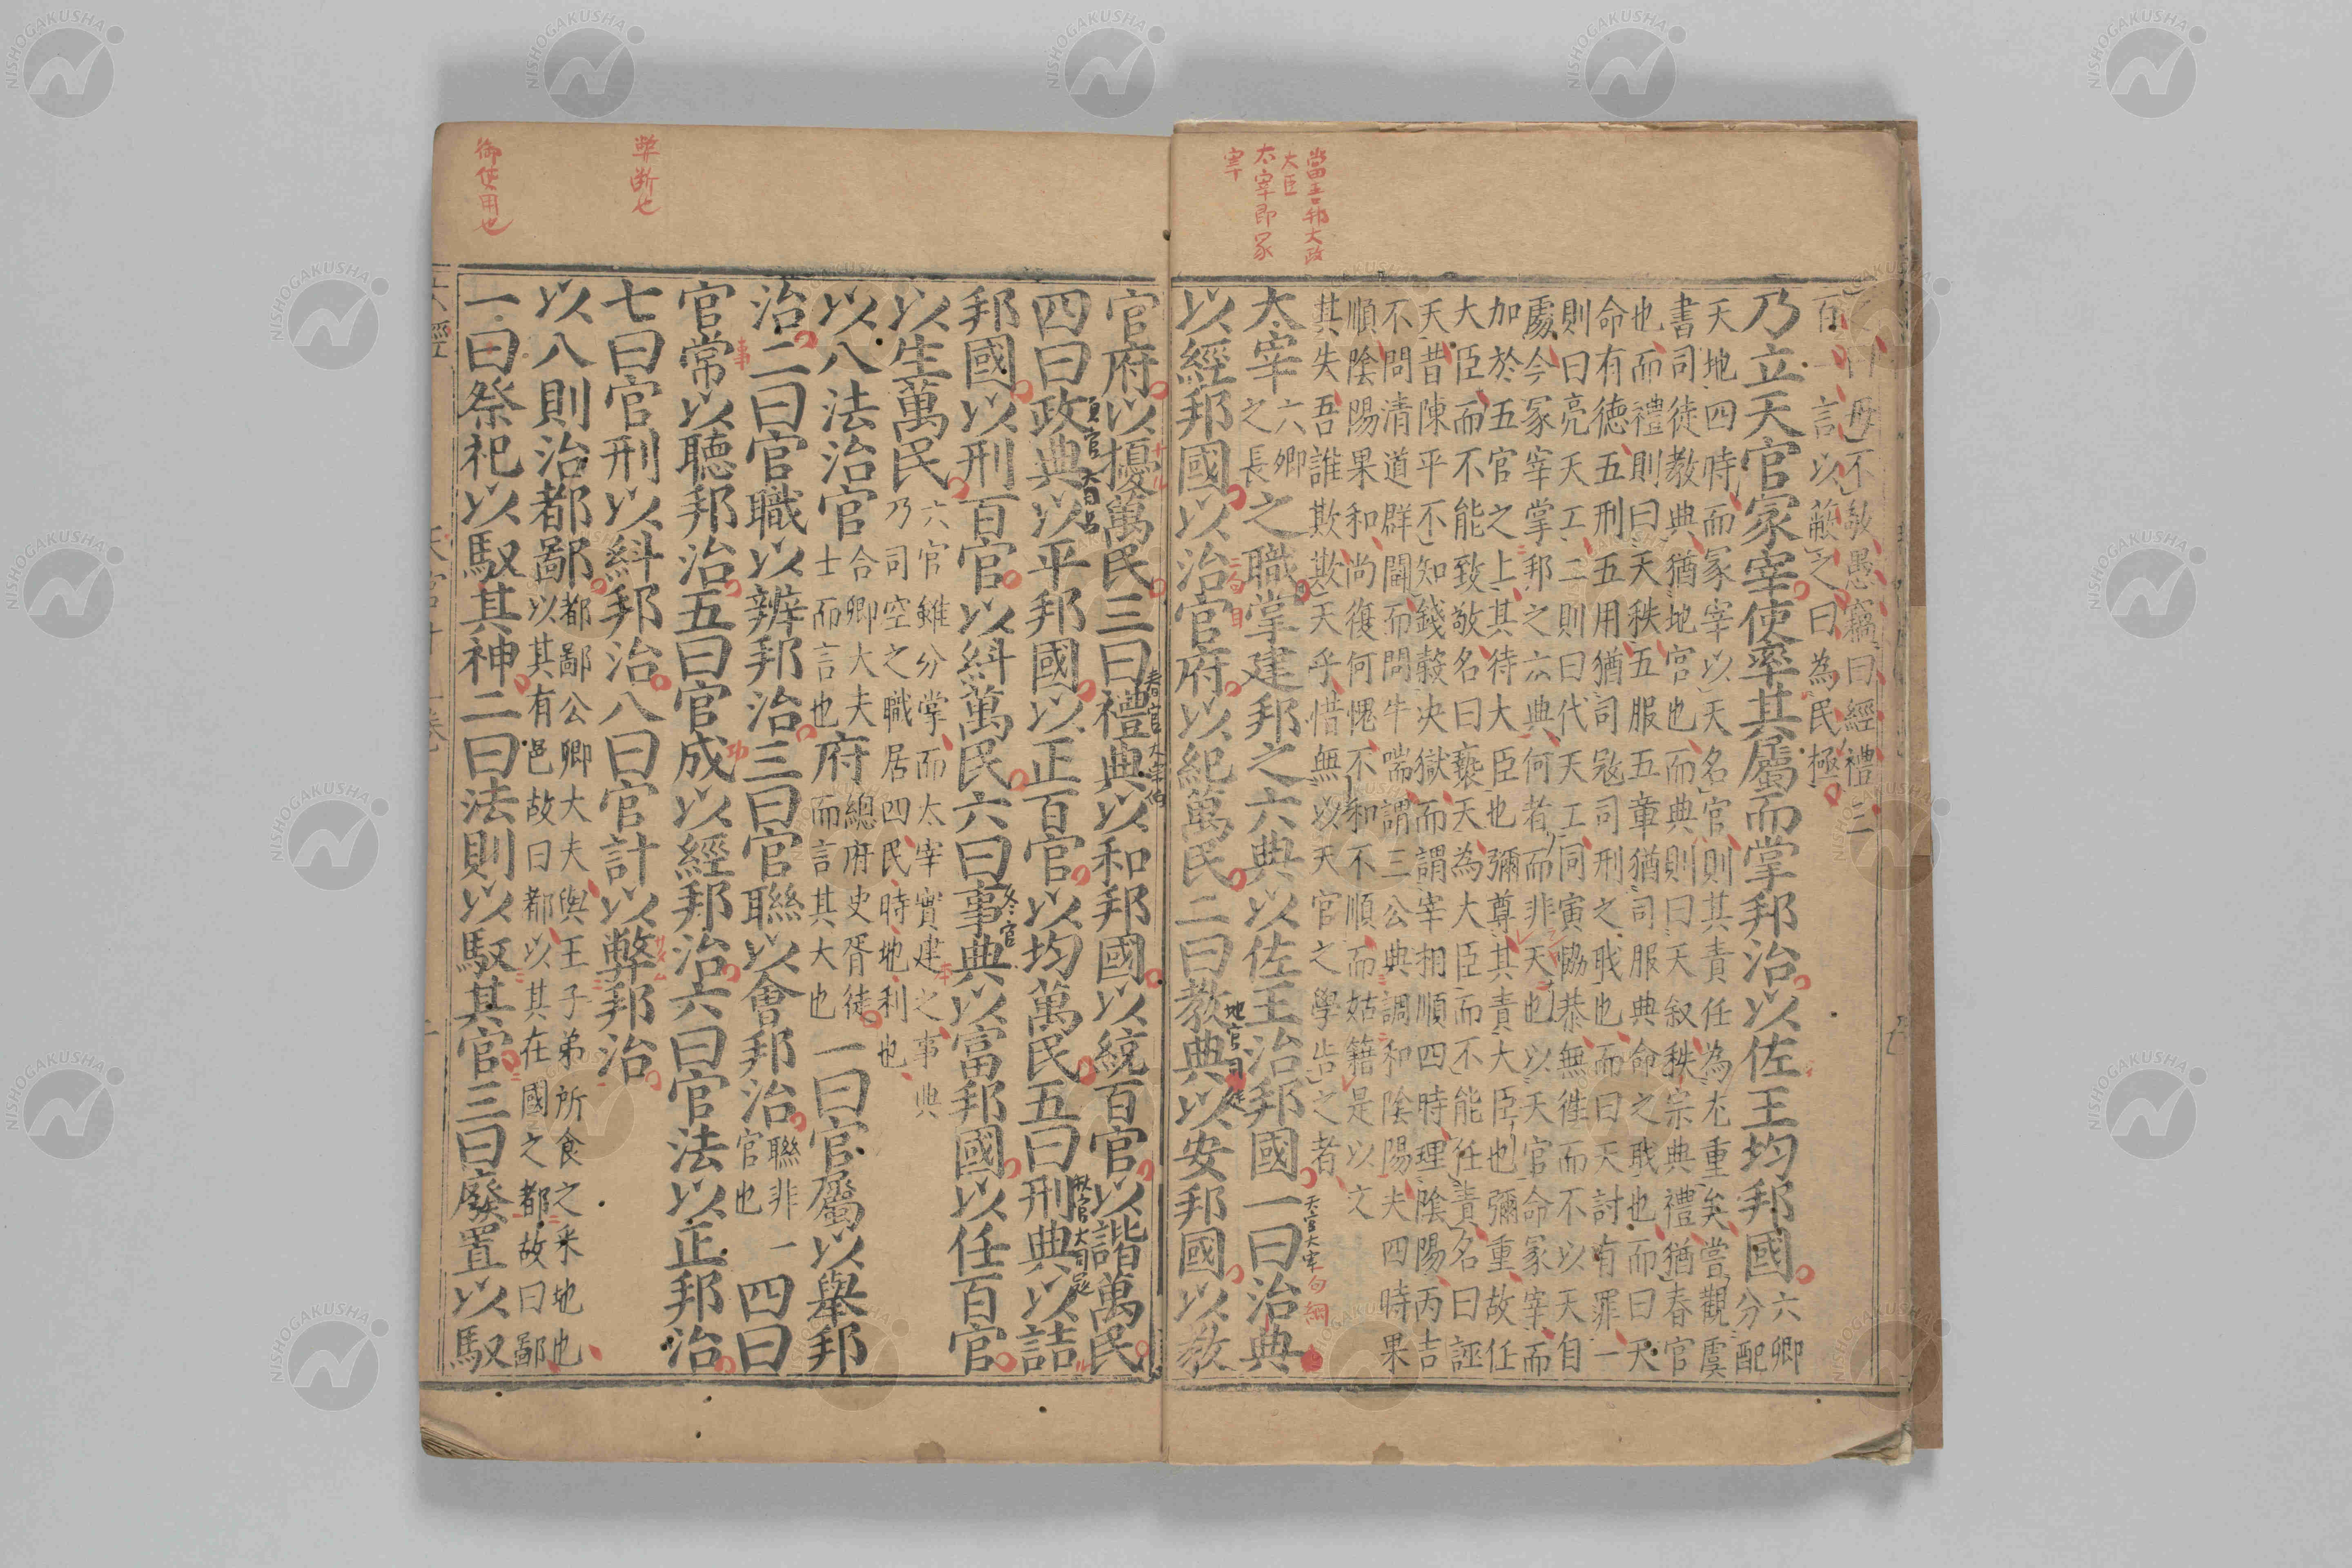 當王邦大政
大臣
太宰即冢
宰
毋不敬愚竊曰經禮三
百一言以蔽之曰為民極
乃立天官冢宰使率其屬而掌邦治以佐王均邦國六卿分配
天地四時而冢宰以天名官則其責任為尢重矣嘗觀虞
書司徒教典猶地官也而典則曰天叙秩宗典禮猶春官
也而禮則曰天秩五服五章猶司服典命之戢也而曰天
命有徳五刑五用猶司寇司刑之戢也而曰天討有罪一
則曰亮天工二則曰代天工同寅協恭無徃而不以天自
處今冢宰掌邦之六典何者而非天也以天官命冢宰而
加於五官之上其待大臣也彌尊其責大臣也彌重故任
大臣而不能致敬名曰褻天為大臣而不能任責名曰誣
天昔陳平不知錢糓决獄而謂宰相順四時理隂陽丙吉
不問清道群鬭而問牛喘謂三公典調和隂陽夫四時果
順隂陽果和尚復何愧不和不順而姑籍是以文
其失吾誰欺欺天乎惜無以天官之學告之者
天官大宰
大宰六卿之長之職掌建邦之六典以佐王治邦國一曰治典
地官司徒
以經邦國以治官府以紀萬民二曰教典以安邦國以教
春官大宗伯
官府以擾萬民三曰禮典以和邦國以統百官以諧萬民
夏官大司馬
秋官大司寇
四曰政典以平邦國以正百官以均萬民五曰刑典以詰
冬官
邦國以刑百官以糾萬民六曰事典以富邦國以任百官
以生萬民六官雖分掌而太宰實建之事典乃司空之職居四民時地利也
以八法治官合卿大夫士而言也府總府史胥徒而言其大也一曰官屬以舉邦
治二曰官職以辨邦治三曰官聯以會邦治聯非一官也四曰
官常以聽邦治五曰官成以經邦治六曰官法以正邦治
七曰官刑以糾邦治八曰官計以弊邦治
以八則治都鄙都鄙公卿大夫與王子弟所食之采地也以其有邑故曰都以其在國之都故曰鄙
一曰祭祀以馭其神二曰法則以馭其官三曰廢置以馭
弊断也
御使用也